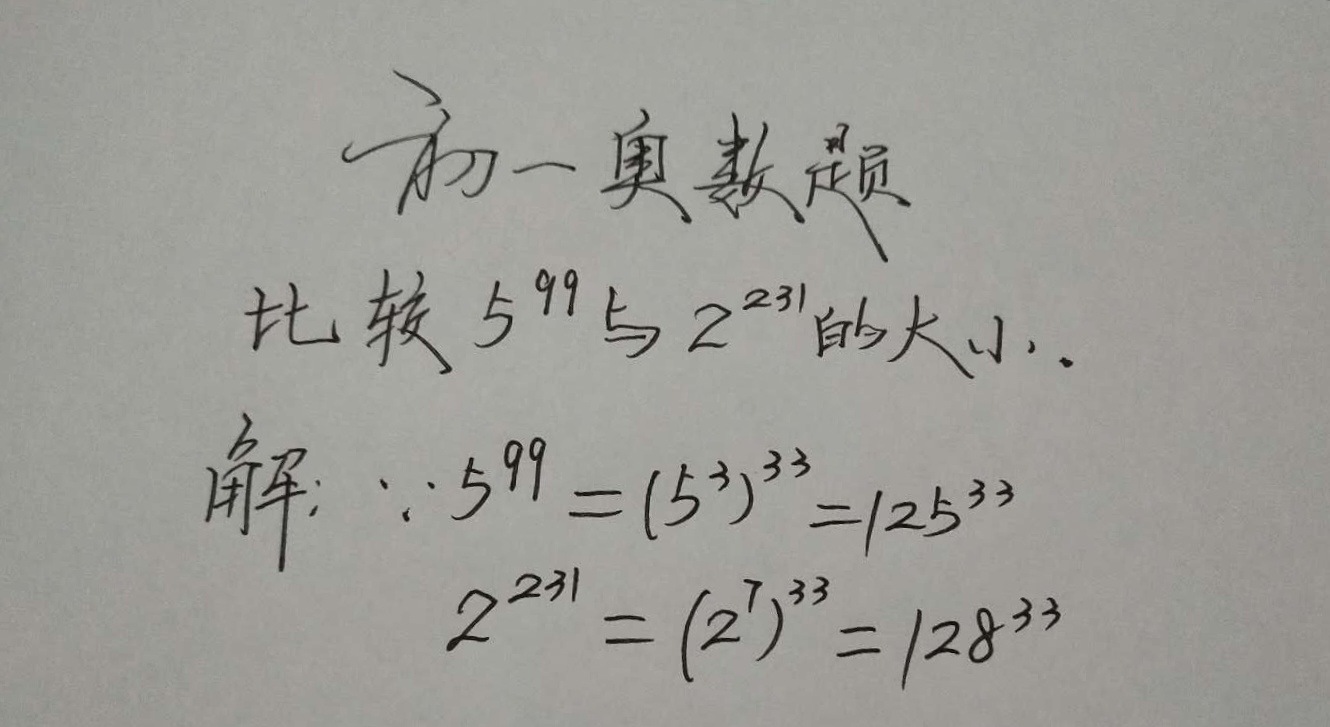 初一奥数题
比较 5⁹⁹ 与 2²³¹ 的大小.
解: ∵ 5⁹⁹ = (5³)³³ = 125³³
2²³¹ = (2⁷)³³ = 128³³